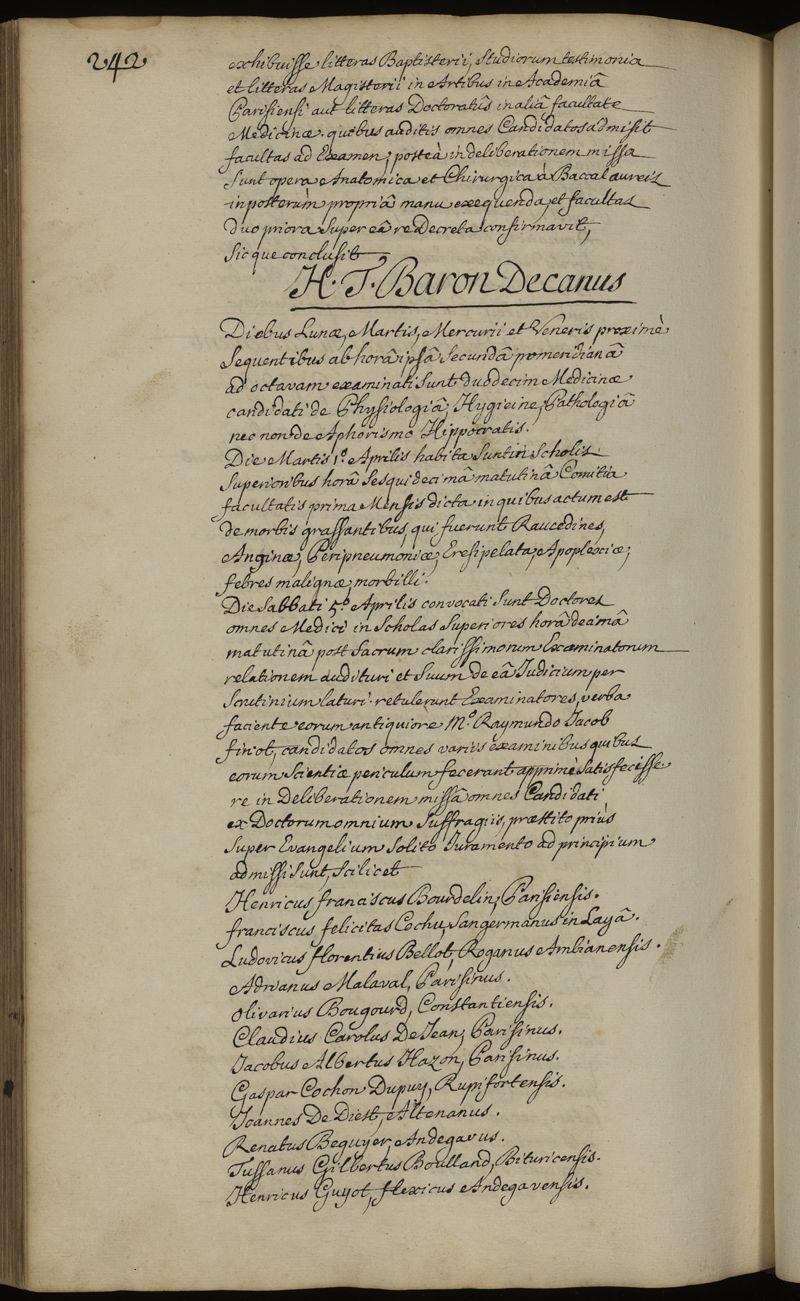 242
exhibuisse litteras Baptisterii, studiorum testimonia
et litteras Magisterii in Artibus in Academiâ
Parisiensi aut litteras Doctoratûs in aliâ facultate
Medicinæ. quibus auditis omnes Candidatos admisit
facultas ad Examen; posteà in deliberationem missa
sunt opera Anatomica et Chirurgica à Baccalaureis
in posterùm propriâ manu exequenda, et facultas
duo priora super eâ re Decreta confirmavit,
sicque conclusit
H. T. Baron Decanus
Diebus Lunæ, Martis, Mercurii et Veneris proximè
sequentibus ab horâ ipsâ secundâ pomeridianâ
ad octavam examinati sunt duodecim Medicinæ
candidati de Physiologiâ, Hygieine, Pathologiâ
nec non de Aphorismo Hippocratis.
Die Martis 1.ª Aprilis habita sunt in Scholis
superioribus horâ sesquidecimâ matutinâ Comitia
facultatis prima Mensis dicta in quibus actum est
de morbis grassantibus, qui fuerunt Raucedines,
Anginæ, Peripneumoniæ, Eresipelata, Apoplexiæ,
febres malignæ, morbilli.
Die Sabbati 5.ª Aprilis convocati sunt Doctores
omnes Medici in Scholas Superiores horâ decimâ
matutinâ post sacrum clarissimorum Examinatorum
relationem audituri et suum de eâ Judicium per
scrutinium laturi. retulerunt Examinatores, verba
faciente eorum antiquiore M.º Raymundo Jacob
finot, candidatos omnes variis examinibus quibus
eorum scientiæ periculum fecerant apprimè satisfecisse
re in Deliberationem missâ omnes Candidati
ex Doctorum omnium suffragiis, præstito priùs
super Evangelium solito Juramento ad principium
admissi sunt, scilicet
Henricus franciscus Bourdelin, Parisiensis.
franciscus felicitas Cochu, Sangermanus in Layâ.
Ludovicus florentius Bellot, Roganus Ambianensis.
Adrianus Malaval, Parisinus.
Olivarius Bougourd, Constantiensis.
Claudius Carolus De Jean, Parisinus.
Jacobus Albertus Hazon, Parisinus.
Gaspar Cochon Dupuy, Rupifortensis.
Joannes De Diest, Altenanus.
Renatus Beguyer, Andegavus.
Tussanus Gilbertus Boulland, Bituricensis.
Henricus Guyot, flexicus Andegavensis.